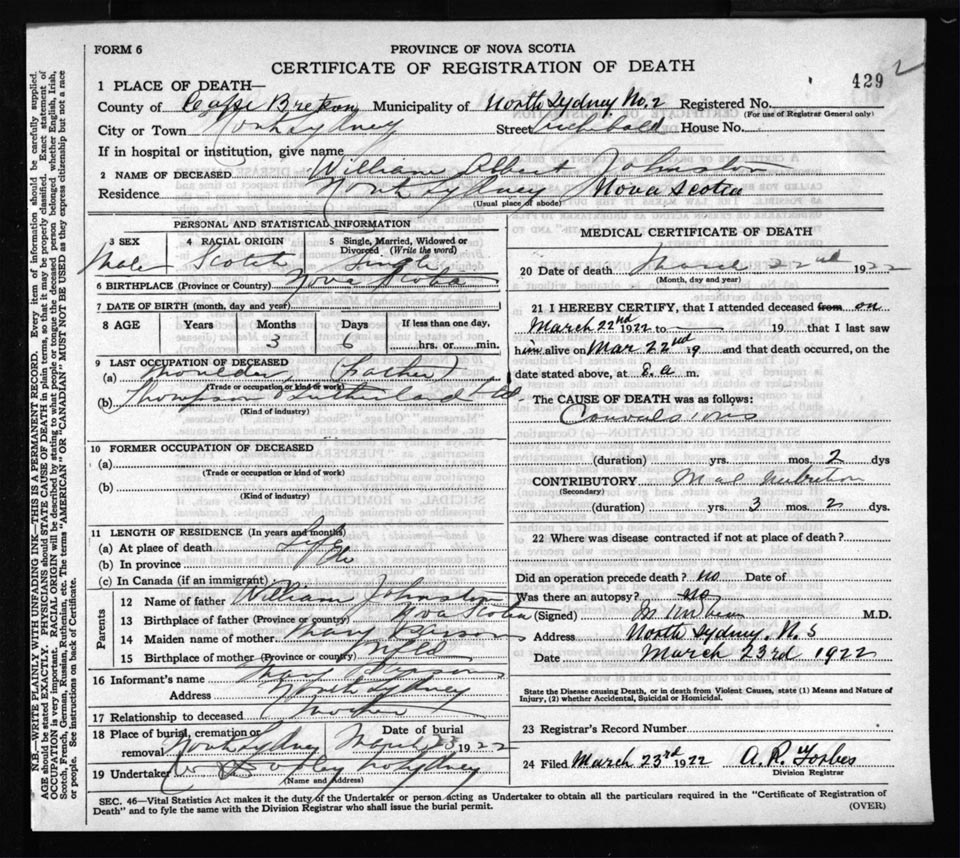 FORM 6
PROVINCE OF NOVA SCOTIA
CERTIFICATE OF REGISTRATION OF DEATH
429 2
1 PLACE OF DEATH—
County of Cape Breton Municipality of North Sydney No. 2 Registered No.
(For use of Registrar General only)
City or Town North Sydney Street Archibald House No.
If in hospital or institution, give name
2 NAME OF DECEASED William Albert Johnston
Residence North Sydney Nova Scotia
(Usual place of abode)
PERSONAL AND STATISTICAL INFORMATION
3 SEX 4 RACIAL ORIGIN 5 Single, Married, Widowed or Divorced (Write the word)
Male Scotch Single
6 BIRTHPLACE (Province or Country) Nova Scotia
7 DATE OF BIRTH (month, day and year)
8 AGE Years Months Days If less than one day,
3 6 hrs. or min.
9 LAST OCCUPATION OF DECEASED
(a) Moulder (Father)
(Trade or occupation or kind of work)
(b) Thompson & Sutherland Ltd.
(Kind of industry)
10 FORMER OCCUPATION OF DECEASED
(a)
(Trade or occupation or kind of work)
(b)
(Kind of industry)
11 LENGTH OF RESIDENCE (In years and months)
(a) At place of death Life
(b) In province Do
(c) In Canada (if an immigrant)
Parents
12 Name of father William Johnston
13 Birthplace of father (Province or country) Nova Scotia
14 Maiden name of mother Mary Parsons
15 Birthplace of mother (Province or country) Nfld
16 Informant's name Mary Parsons
Address North Sydney
17 Relationship to deceased Mother
18 Place of burial, cremation or removal North Sydney Date of burial March 23 1922
19 Undertaker
(Name and Address)
MEDICAL CERTIFICATE OF DEATH
20 Date of death March 22nd 1922
(Month, day and year)
21 I HEREBY CERTIFY, that I attended deceased from on
March 22nd 1922 to 19 that I last saw
him alive on Mar 22nd 19 and that death occurred, on the
date stated above, at 8. a m.
The CAUSE OF DEATH was as follows:
Convulsions
(duration) yrs. mos. 2 dys
CONTRIBUTORY Mal nutrition
(Secondary)
(duration) yrs. 3 mos. 2 dys.
22 Where was disease contracted if not at place of death?
Did an operation precede death? no Date of
Was there an autopsy? no
(Signed) M.D.
Address North Sydney, N. S
Date March 23rd 1922
State the Disease causing Death, or in death from Violent Causes, state (1) Means and Nature of
Injury, (2) whether Accidental, Suicidal or Homicidal.
23 Registrar's Record Number
24 Filed March 23rd 1922 A. R. Forbes
Division Registrar
SEC. 46—Vital Statistics Act makes it the duty of the Undertaker or person acting as Undertaker to obtain all the particulars required in the "Certificate of Registration of
Death" and to fyle the same with the Division Registrar who shall issue the burial permit.
(OVER)
N.B.—WRITE PLAINLY WITH UNFADING INK—THIS IS A PERMANENT RECORD. Every item of information should be carefully supplied.
AGE should be stated EXACTLY. PHYSICIANS should STATE CAUSE OF DEATH in plain terms, so that it may be properly classified. Exact statement of
OCCUPATION is very important. RACIAL ORIGIN will be described by stating to what people or tongue the deceased person belonged whether English, Irish,
Scotch, French, German, Russian, Ruthenian, etc. The terms "AMERICAN" OR "CANADIAN" MUST NOT BE USED as they express citizenship but not a race
or people. See instructions on back of Certificate.